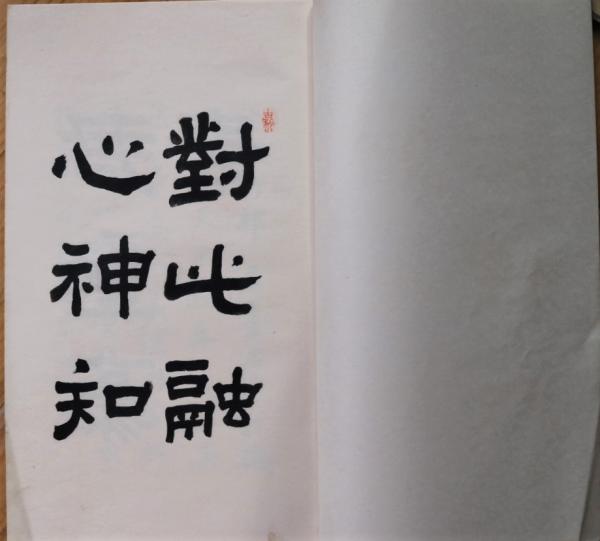 對此融
心神知